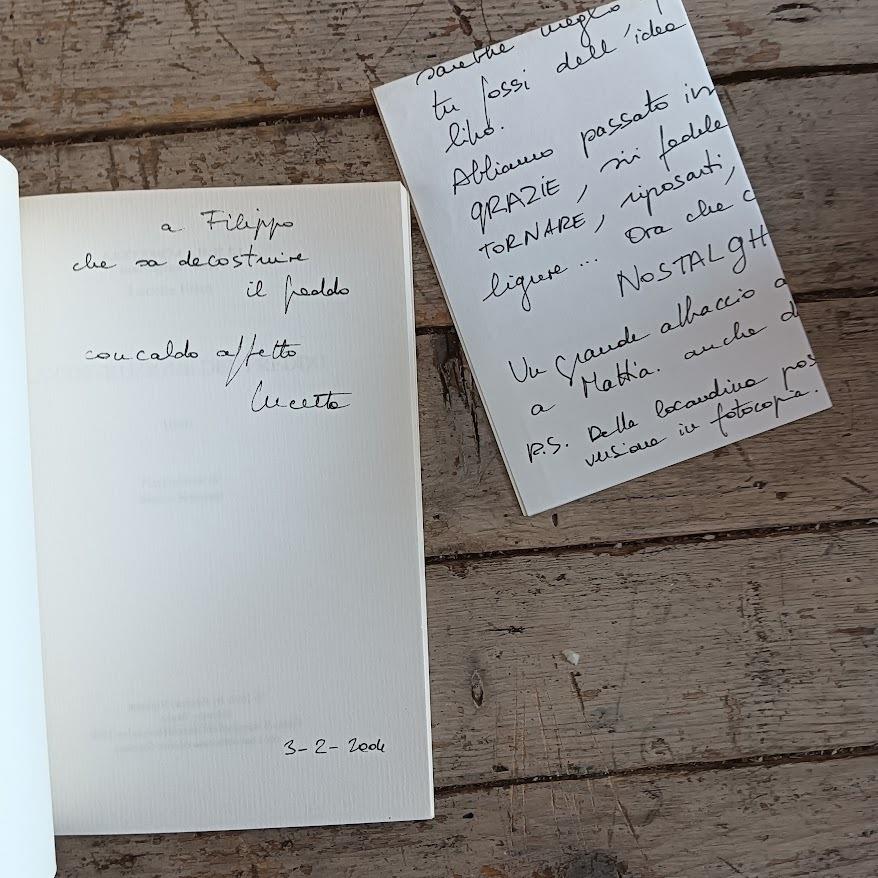 a Filippo
che sa decostruire
il freddo
con caldo affetto
Lucetta
3-2-2004
sarebbe meglio
tu fossi dell'idea
libro.
Abbiamo passato
GRAZIE, fedele
TORNARE, riposarti,
ligure... Ora che
NOSTALGH
Un grande abbraccio a
a Mattia. anche d
P.S. Della locandina pos
versione in fotocopia.